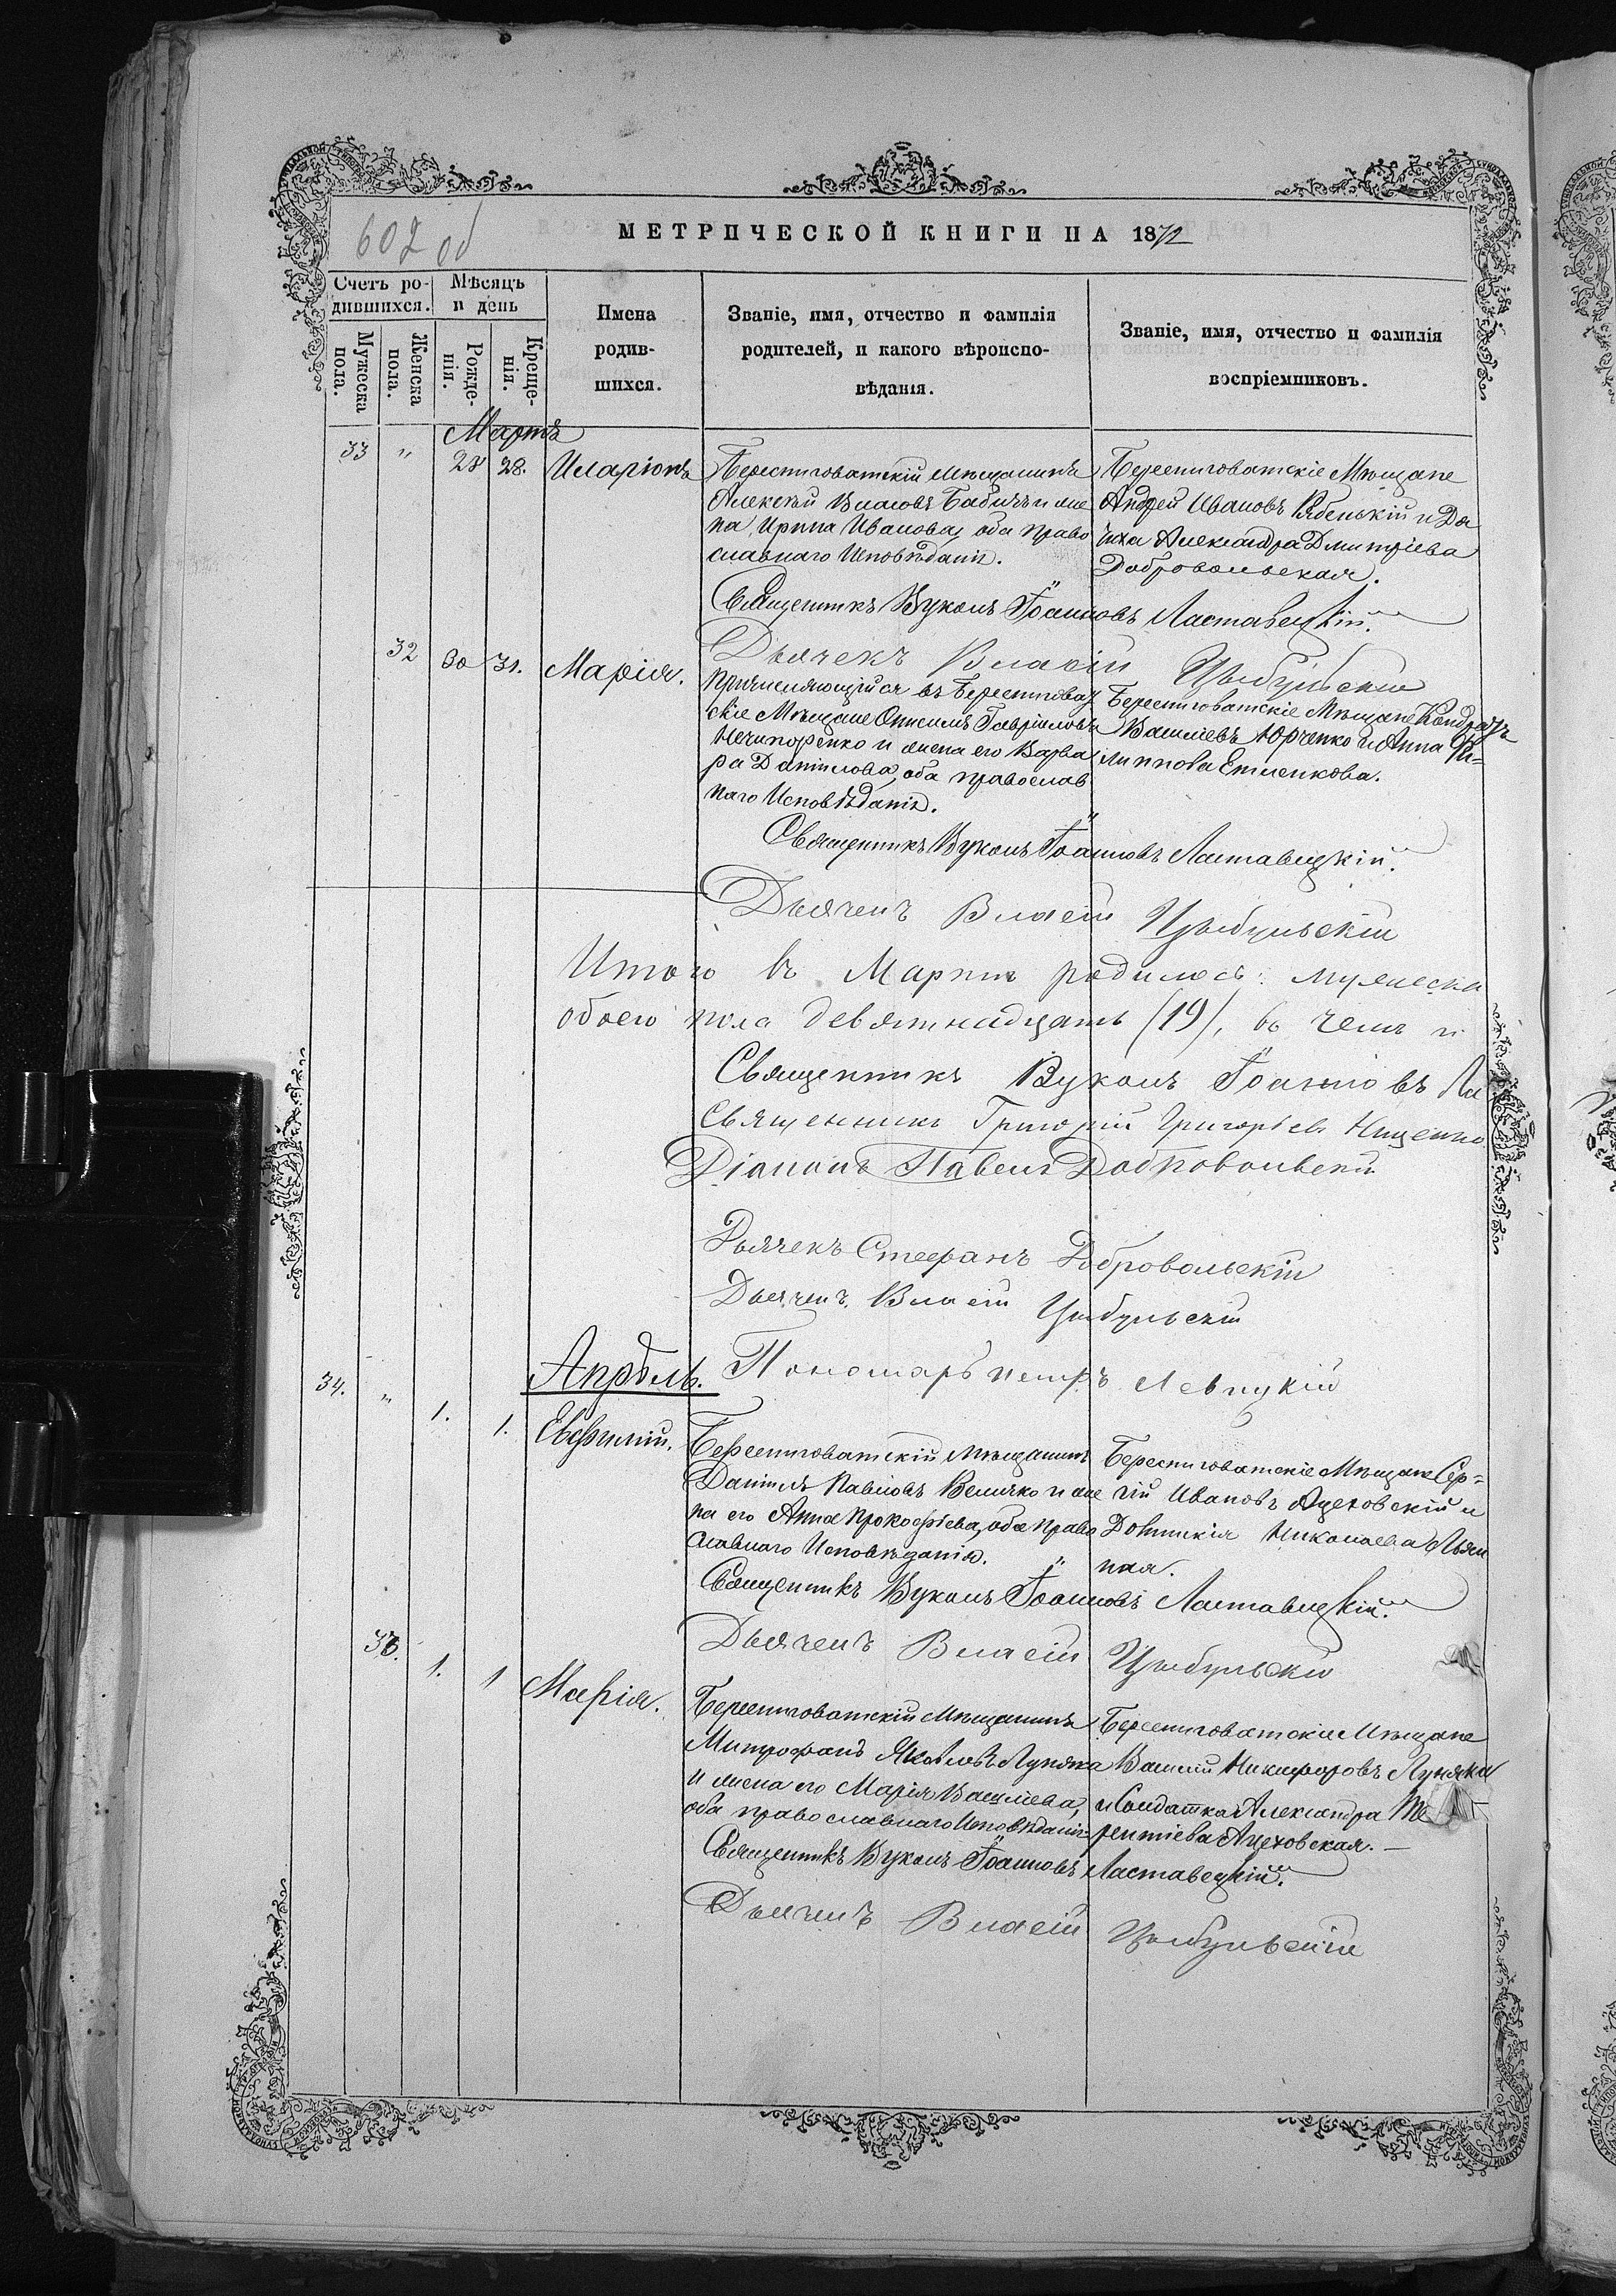 602 об
МЕТРИЧЕСКОЙ КНИГИ НА 1872
Счетъ ро-
дившихся.
Мѣсяцъ
и день
Мужеска
пола.
Женска
пола.
Рожде-
нія.
Креще-
нія.
Имена
родив-
шихся.
Званіе, имя, отчество и фамилія
родителей, и какого вѣроиспо-
вѣданія.
Званіе, имя, отчество и фамилія
воспріемниковъ.
Мартъ
33 " 28 28. Иларіонъ
Берестоватскій Мѣщанинъ
Алексѣй Власовъ Бабичъ и же
на Ирина Иванова, оба право
славнаго Исповѣданія.
Берестоватскіе Мѣщане
Андрей Ивановъ и Дья
чиха Александра Дмитріева
Добровольская.
Священникъ Вуколъ Іоанновъ Ластавецкій.
Дьячекъ Власій Цыбульскій
32 30 31. Марія.
Причисляющійся въ Берестоват
скіе Мѣщане Онисимъ Гавріиловъ
Нечипоренко и жена его Варва
ра Даніилова, оба православ
наго Исповѣданія.
Берестоватскіе Мѣщане Кондратъ
Васильевъ Юрченко и Анна Фи=
липпова
Священникъ Вуколъ Іоанновъ Ластавецкій.
Дьячекъ Власій Цыбульскій
Итого въ Мартѣ родилось: мужеска
обоего пола девятнадцать (19), въ чемъ и
Священникъ Вуколъ Іоанновъ Ла
Священникъ Григорій Григорьев Ищенко
Діаконъ Павелъ Добровольскій
Дьячекъ Стефанъ Добровольскій
Дьячекъ Власій Цыбульскій
Пономарь Петръ Левицкій
Апрѣль.
34. " 1. 1. Евфимій.
Берестоватскій Мѣщанинъ
Даніилъ Павловъ Величко и же
на его Анна Прокофіева, оба Право
славнаго Исповѣданія.
Берестоватскіе Мѣщане Сер=
гій Ивановъ Яцеховскій и
Домникія Николаева
ная.
Священникъ Вуколъ Іоанновъ Ластавецкій.
Дьячекъ Власій Цыбульскій
33. 1. 1 Марія.
Берестоватскій Мѣщанинъ
Митрофанъ Яковлевъ Луняка
и жена его Марія Васильева,
оба православнаго Исповѣданія
Берестоватскіе Мѣщане
Василій Никифоровъ Луняка
и Солдатка Александра Те
рентіева Яцеховская.—
Священникъ Вуколъ Іоанновъ Ластавецкій.
Дьячекъ Власій Цыбульскій